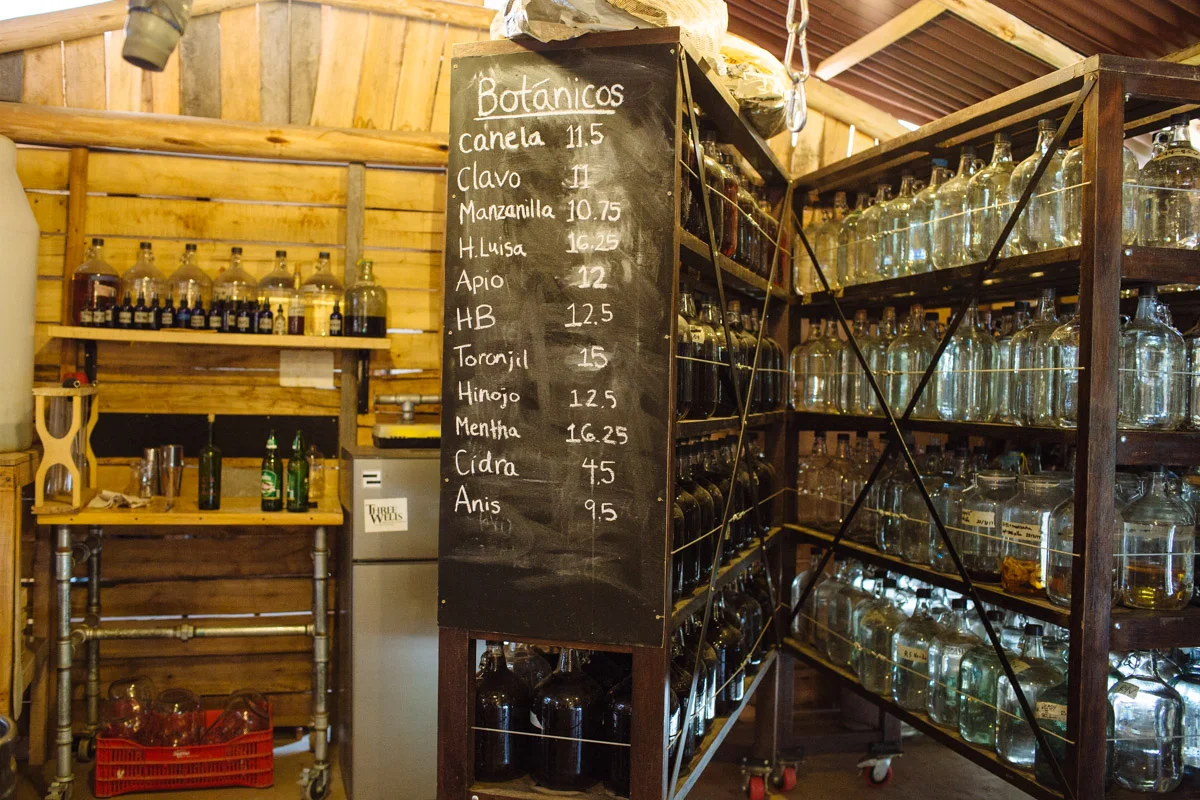 Botánicos
canela 11.5
Clavo 11
Manzanilla 10.75
H.Luisa 16.25
Apio 12
HB 12.5
Toronjil 15
Hinojo 12.5
Mentha 16.25
Cidra 45
Anis 9.5
THREE WELLS